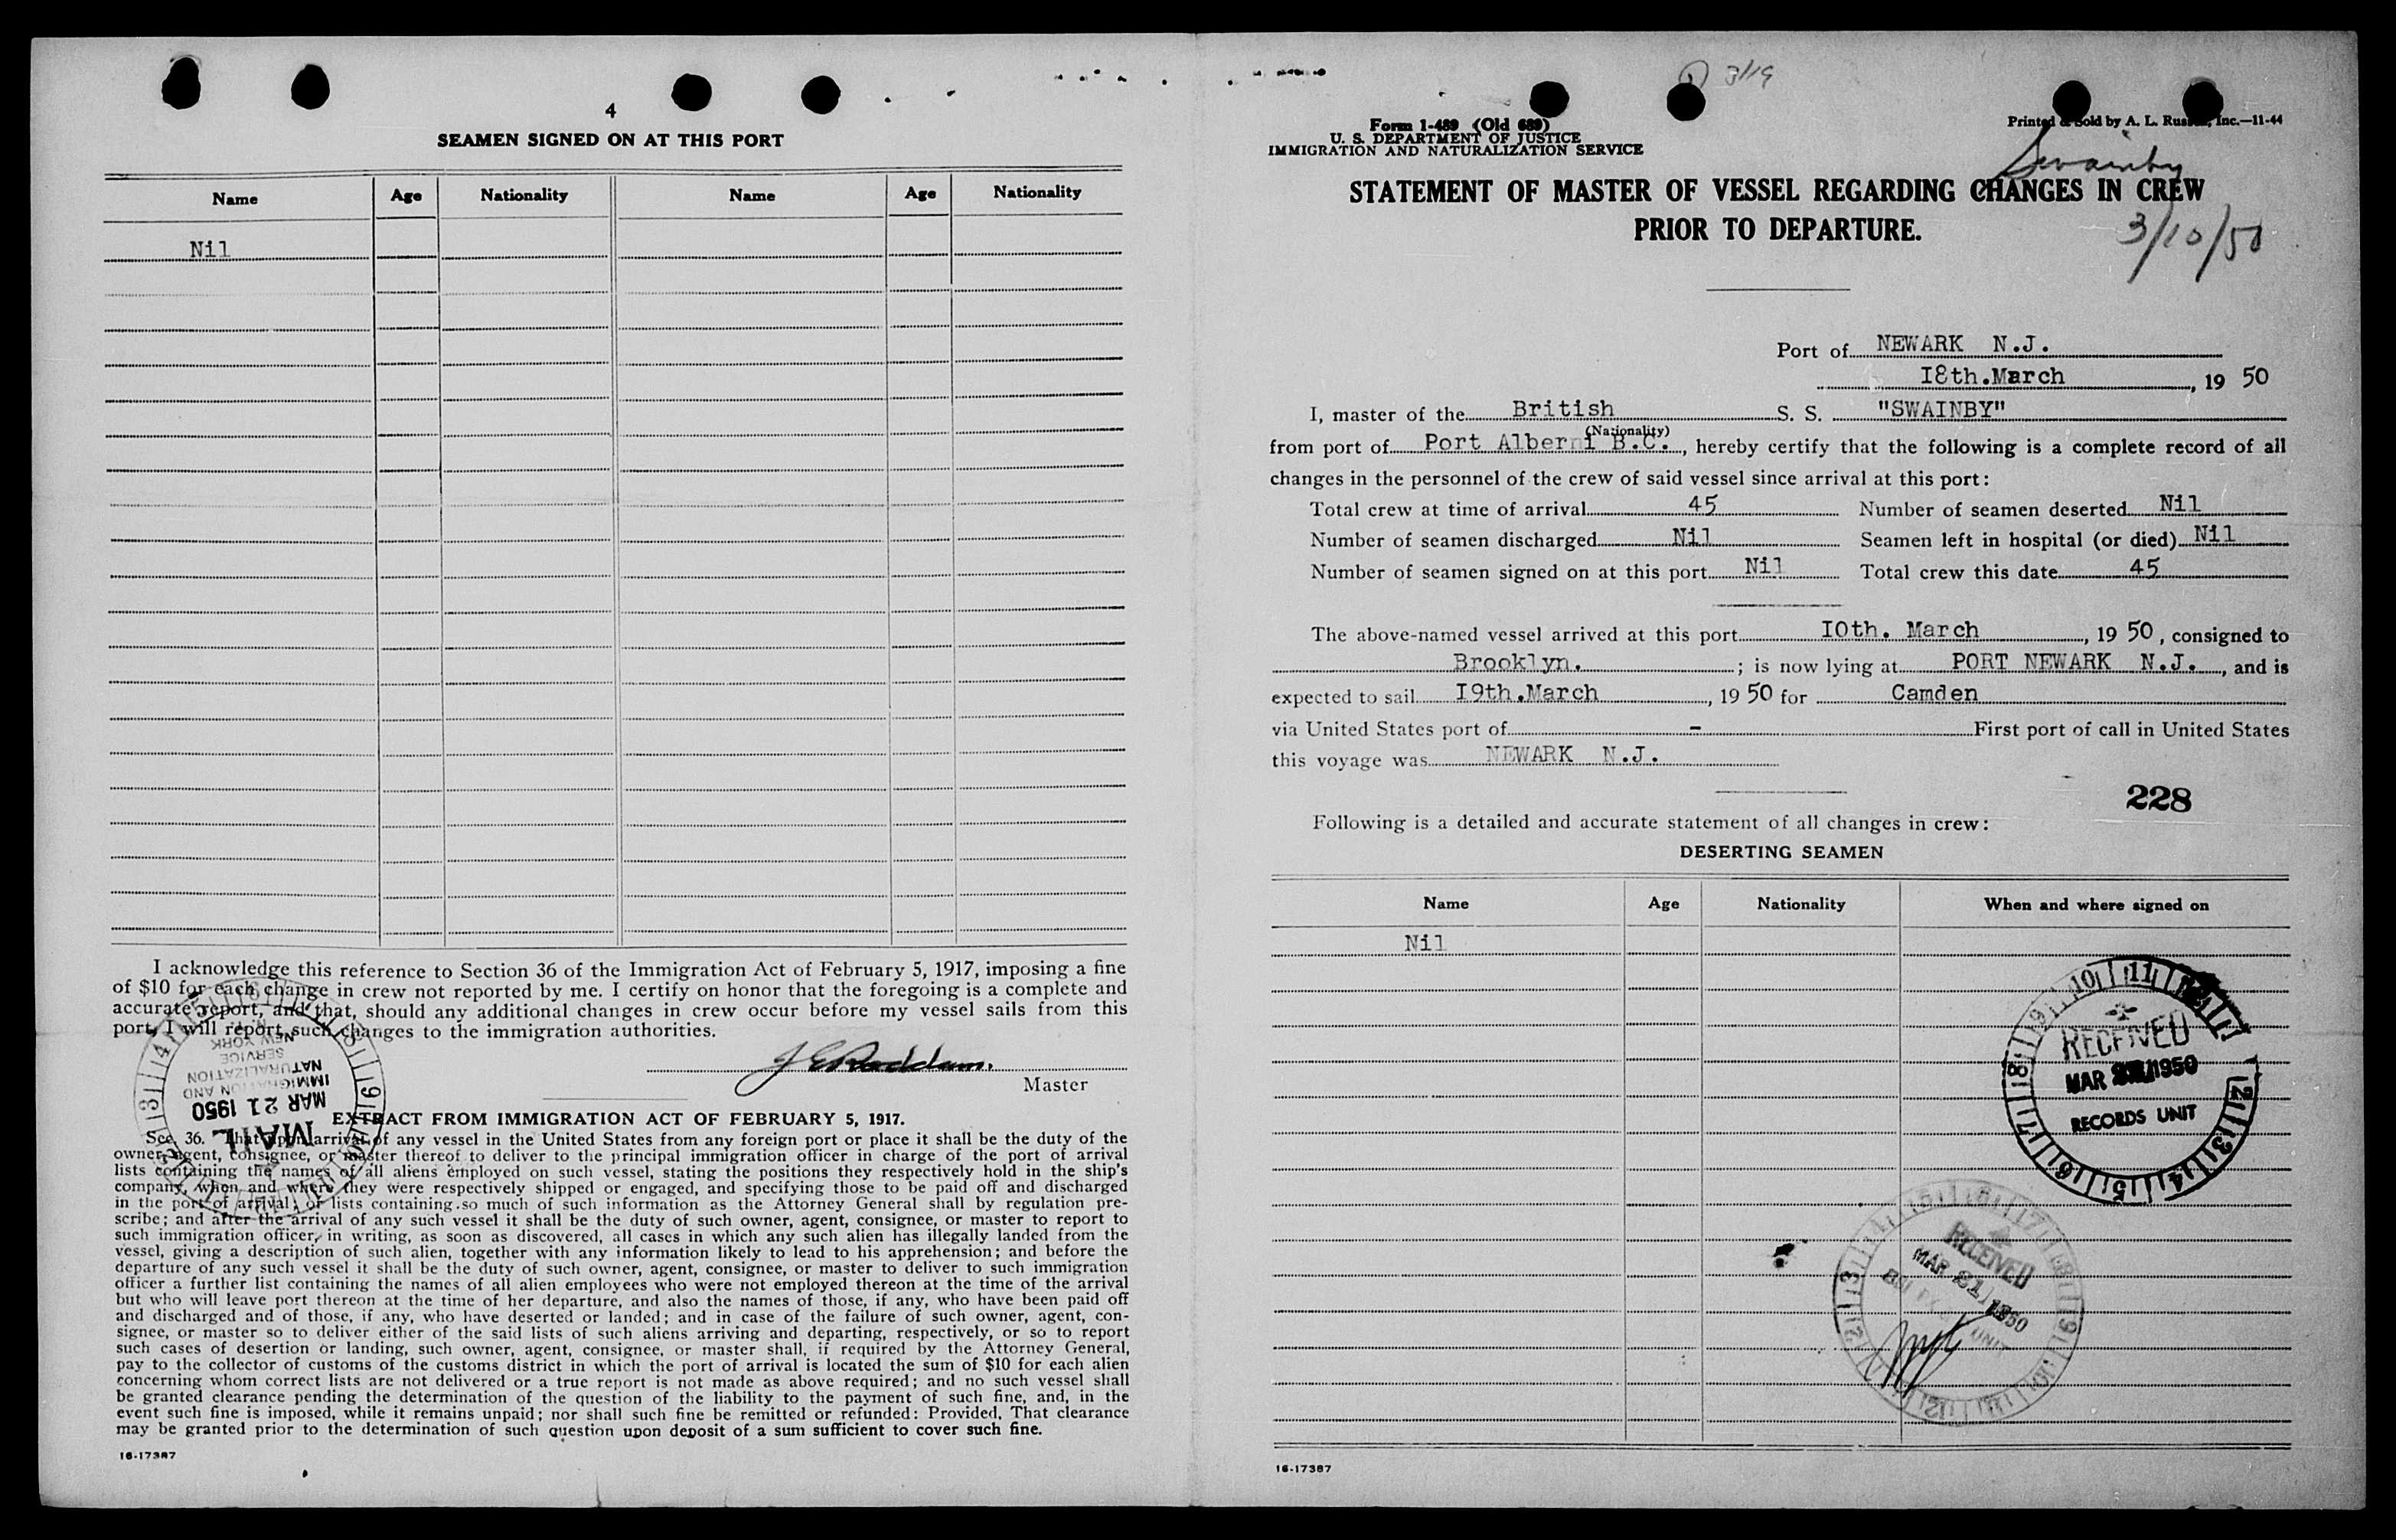 4
SEAMEN SIGNED ON AT THIS PORT
Name Age Nationality Name Age Nationality
Nil
I acknowledge this reference to Section 36 of the Immigration Act of February 5, 1917, imposing a fine
of $10 for each change in crew not reported by me. I certify on honor that the foregoing is a complete and
accurate report, and that, should any additional changes in crew occur before my vessel sails from this
port, I will report such changes to the immigration authorities.
Master
EXTRACT FROM IMMIGRATION ACT OF FEBRUARY 5, 1917.
Sec. 36. That upon arrival of any vessel in the United States from any foreign port or place it shall be the duty of the
owner, agent, consignee, or master thereof to deliver to the principal immigration officer in charge of the port of arrival
lists containing the names of all aliens employed on such vessel, stating the positions they respectively hold in the ship's
company, when and where they were respectively shipped or engaged, and specifying those to be paid off and discharged
in the port of arrival; or lists containing so much of such information as the Attorney General shall by regulation pre-
scribe; and after the arrival of any such vessel it shall be the duty of such owner, agent, consignee, or master to report to
such immigration officer, in writing, as soon as discovered, all cases in which any such alien has illegally landed from the
vessel, giving a description of such alien, together with any information likely to lead to his apprehension; and before the
departure of any such vessel it shall be the duty of such owner, agent, consignee, or master to deliver to such immigration
officer a further list containing the names of all alien employees who were not employed thereon at the time of the arrival
but who will leave port thereon at the time of her departure, and also the names of those, if any, who have been paid off
and discharged and of those, if any, who have deserted or landed; and in case of the failure of such owner, agent, con-
signee, or master so to deliver either of the said lists of such aliens arriving and departing, respectively, or so to report
such cases of desertion or landing, such owner, agent, consignee, or master shall, if required by the Attorney General,
pay to the collector of customs of the customs district in which the port of arrival is located the sum of $10 for each alien
concerning whom correct lists are not delivered or a true report is not made as above required; and no such vessel shall
be granted clearance pending the determination of the question of the liability to the payment of such fine, and, in the
event such fine is imposed, while it remains unpaid; nor shall such fine be remitted or refunded: Provided, That clearance
may be granted prior to the determination of such question upon deposit of a sum sufficient to cover such fine.
16-17387
MAIL
MAR 21 1950
IMMIGRATION AND
NATURALIZATION
SERVICE
NEW YORK
3/19
Form I-489 (Old 689)
U. S. DEPARTMENT OF JUSTICE
IMMIGRATION AND NATURALIZATION SERVICE
Printed & Sold by A. L. Russell, Inc.—11-44
Swainby
STATEMENT OF MASTER OF VESSEL REGARDING CHANGES IN CREW
PRIOR TO DEPARTURE.
3/10/50
Port of NEWARK N.J.
18th.March, 19 50
I, master of the British S. S. "SWAINBY"
(Nationality)
from port of Port Alberni B.C., hereby certify that the following is a complete record of all
changes in the personnel of the crew of said vessel since arrival at this port:
Total crew at time of arrival 45 Number of seamen deserted Nil
Number of seamen discharged Nil Seamen left in hospital (or died) Nil
Number of seamen signed on at this port Nil Total crew this date 45
The above-named vessel arrived at this port 10th. March, 19 50, consigned to
Brooklyn. ; is now lying at PORT NEWARK N.J., and is
expected to sail 19th.March, 19 50 for Camden
via United States port of - First port of call in United States
this voyage was NEWARK N.J.
228
Following is a detailed and accurate statement of all changes in crew:
DESERTING SEAMEN
Name Age Nationality When and where signed on
Nil
RECEIVED
MAR 1950
RECORDS UNIT
RECEIVED
MAR 21 1950
UNIT
16-17387